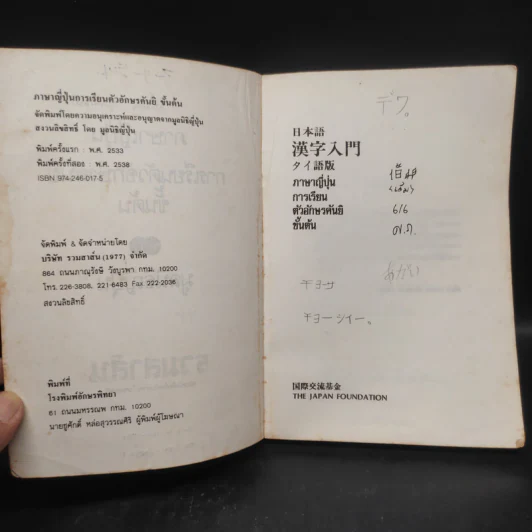 ภาษาญี่ปุ่นการเรียนตัวอักษรคันยิ ขั้นต้น
จัดพิมพ์โดยความอนุเคราะห์และอนุญาตจากมูลนิธิญี่ปุ่น
สงวนลิขสิทธิ์ โดย มูลนิธิญี่ปุ่น
พิมพ์ครั้งแรก : พ.ศ. 2533
พิมพ์ครั้งที่สอง : พ.ศ. 2538
ISBN 974-246-017-5
จัดพิมพ์ & จัดจำหน่ายโดย
บริษัท รวมสาส์น (1977) จำกัด
864 ถนนภาณุรังษี วังบูรพา กทม. 10200
โทร. 226-3808, 221-6483 Fax 222-2036
สงวนลิขสิทธิ์
พิมพ์ที่
โรงพิมพ์อักษรพิทยา
61 ถนนมหรรณพ กทม. 10200
นายชูศักดิ์ หล่อสุวรรณศิริ ผู้พิมพ์ผู้โฆษณา
デワ。
日本語
漢字入門
タイ語版
ภาษาญี่ปุ่น
การเรียน
ตัวอักษรคันยิ
ขั้นต้น
6/6
チョーシイー。
国際交流基金
THE JAPAN FOUNDATION